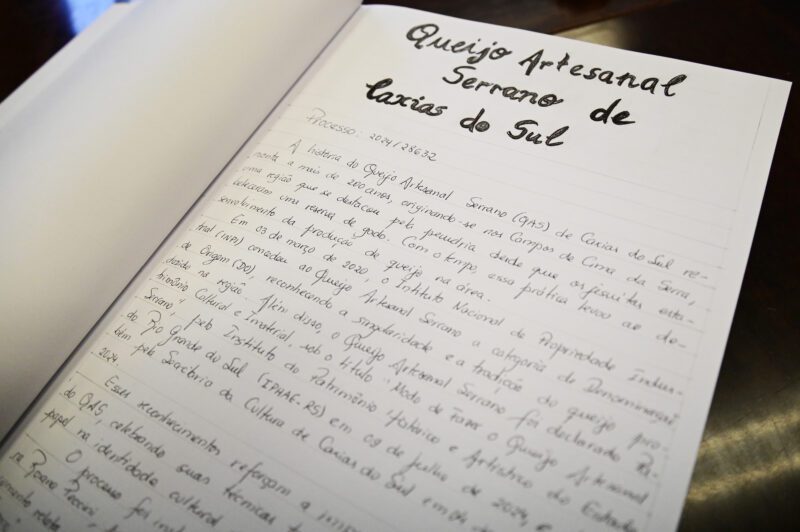 Queijo Artesanal
Serrano de
Caxias do Sul
Processo: 2024/28632
A história do Queijo Artesanal Serrano (QAS) de Caxias do Sul re-
monta a mais de 200 anos, originando-se nos Campos de Cima da Serra,
uma região que se destacou pela pecuária desde que os jesuítas esta-
beleceram uma reserva de gado. Com o tempo, essa prática levou ao de-
senvolvimento da produção de queijo na área.
Em 03 de março de 2020, o Instituto Nacional de Propriedade Indus-
trial (INPI) concedeu ao Queijo Artesanal Serrano a categoria de Denominação
de Origem (DO), reconhecendo a singularidade e a tradição do queijo pro-
duzido na região. Além disso, o Queijo Artesanal Serrano foi declarado Pa-
trimônio Cultural e Imaterial, sob o título "Modo de Fazer o Queijo Artesanal
Serrano", pelo Instituto do Patrimônio Histórico e Artístico do Estado
do Rio Grande do Sul (IPHAE-RS) em 09 de julho de 2024, e
bém pela Secretaria da Cultura de Caxias do Sul em
2024.
Esses reconhecimentos reforçam a
do QAS, celebrando suas técnicas
papel na identidade cultural
O processo foi